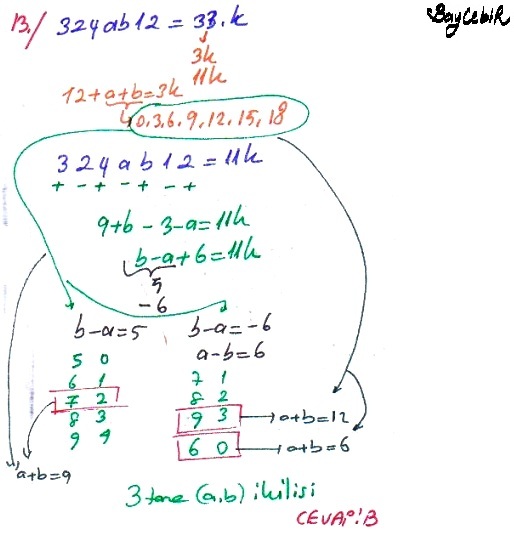 BayCebiR
13./ 324ab12 = 33.k
3k
11k
12+a+b=3k
0,3,6,9,12,15,18
324ab12 = 11k
+ - + - + - +
9+b-3-a=11k
b-a+6=11k
5
-6
b-a=5 b-a=-6
a-b=6
5 0
6 1 7 1
7 2 8 2
8 3 9 3 → a+b=12
9 4 6 0 → a+b=6
a+b=9
3 tane (a,b) ikilisi
CEVAP: B